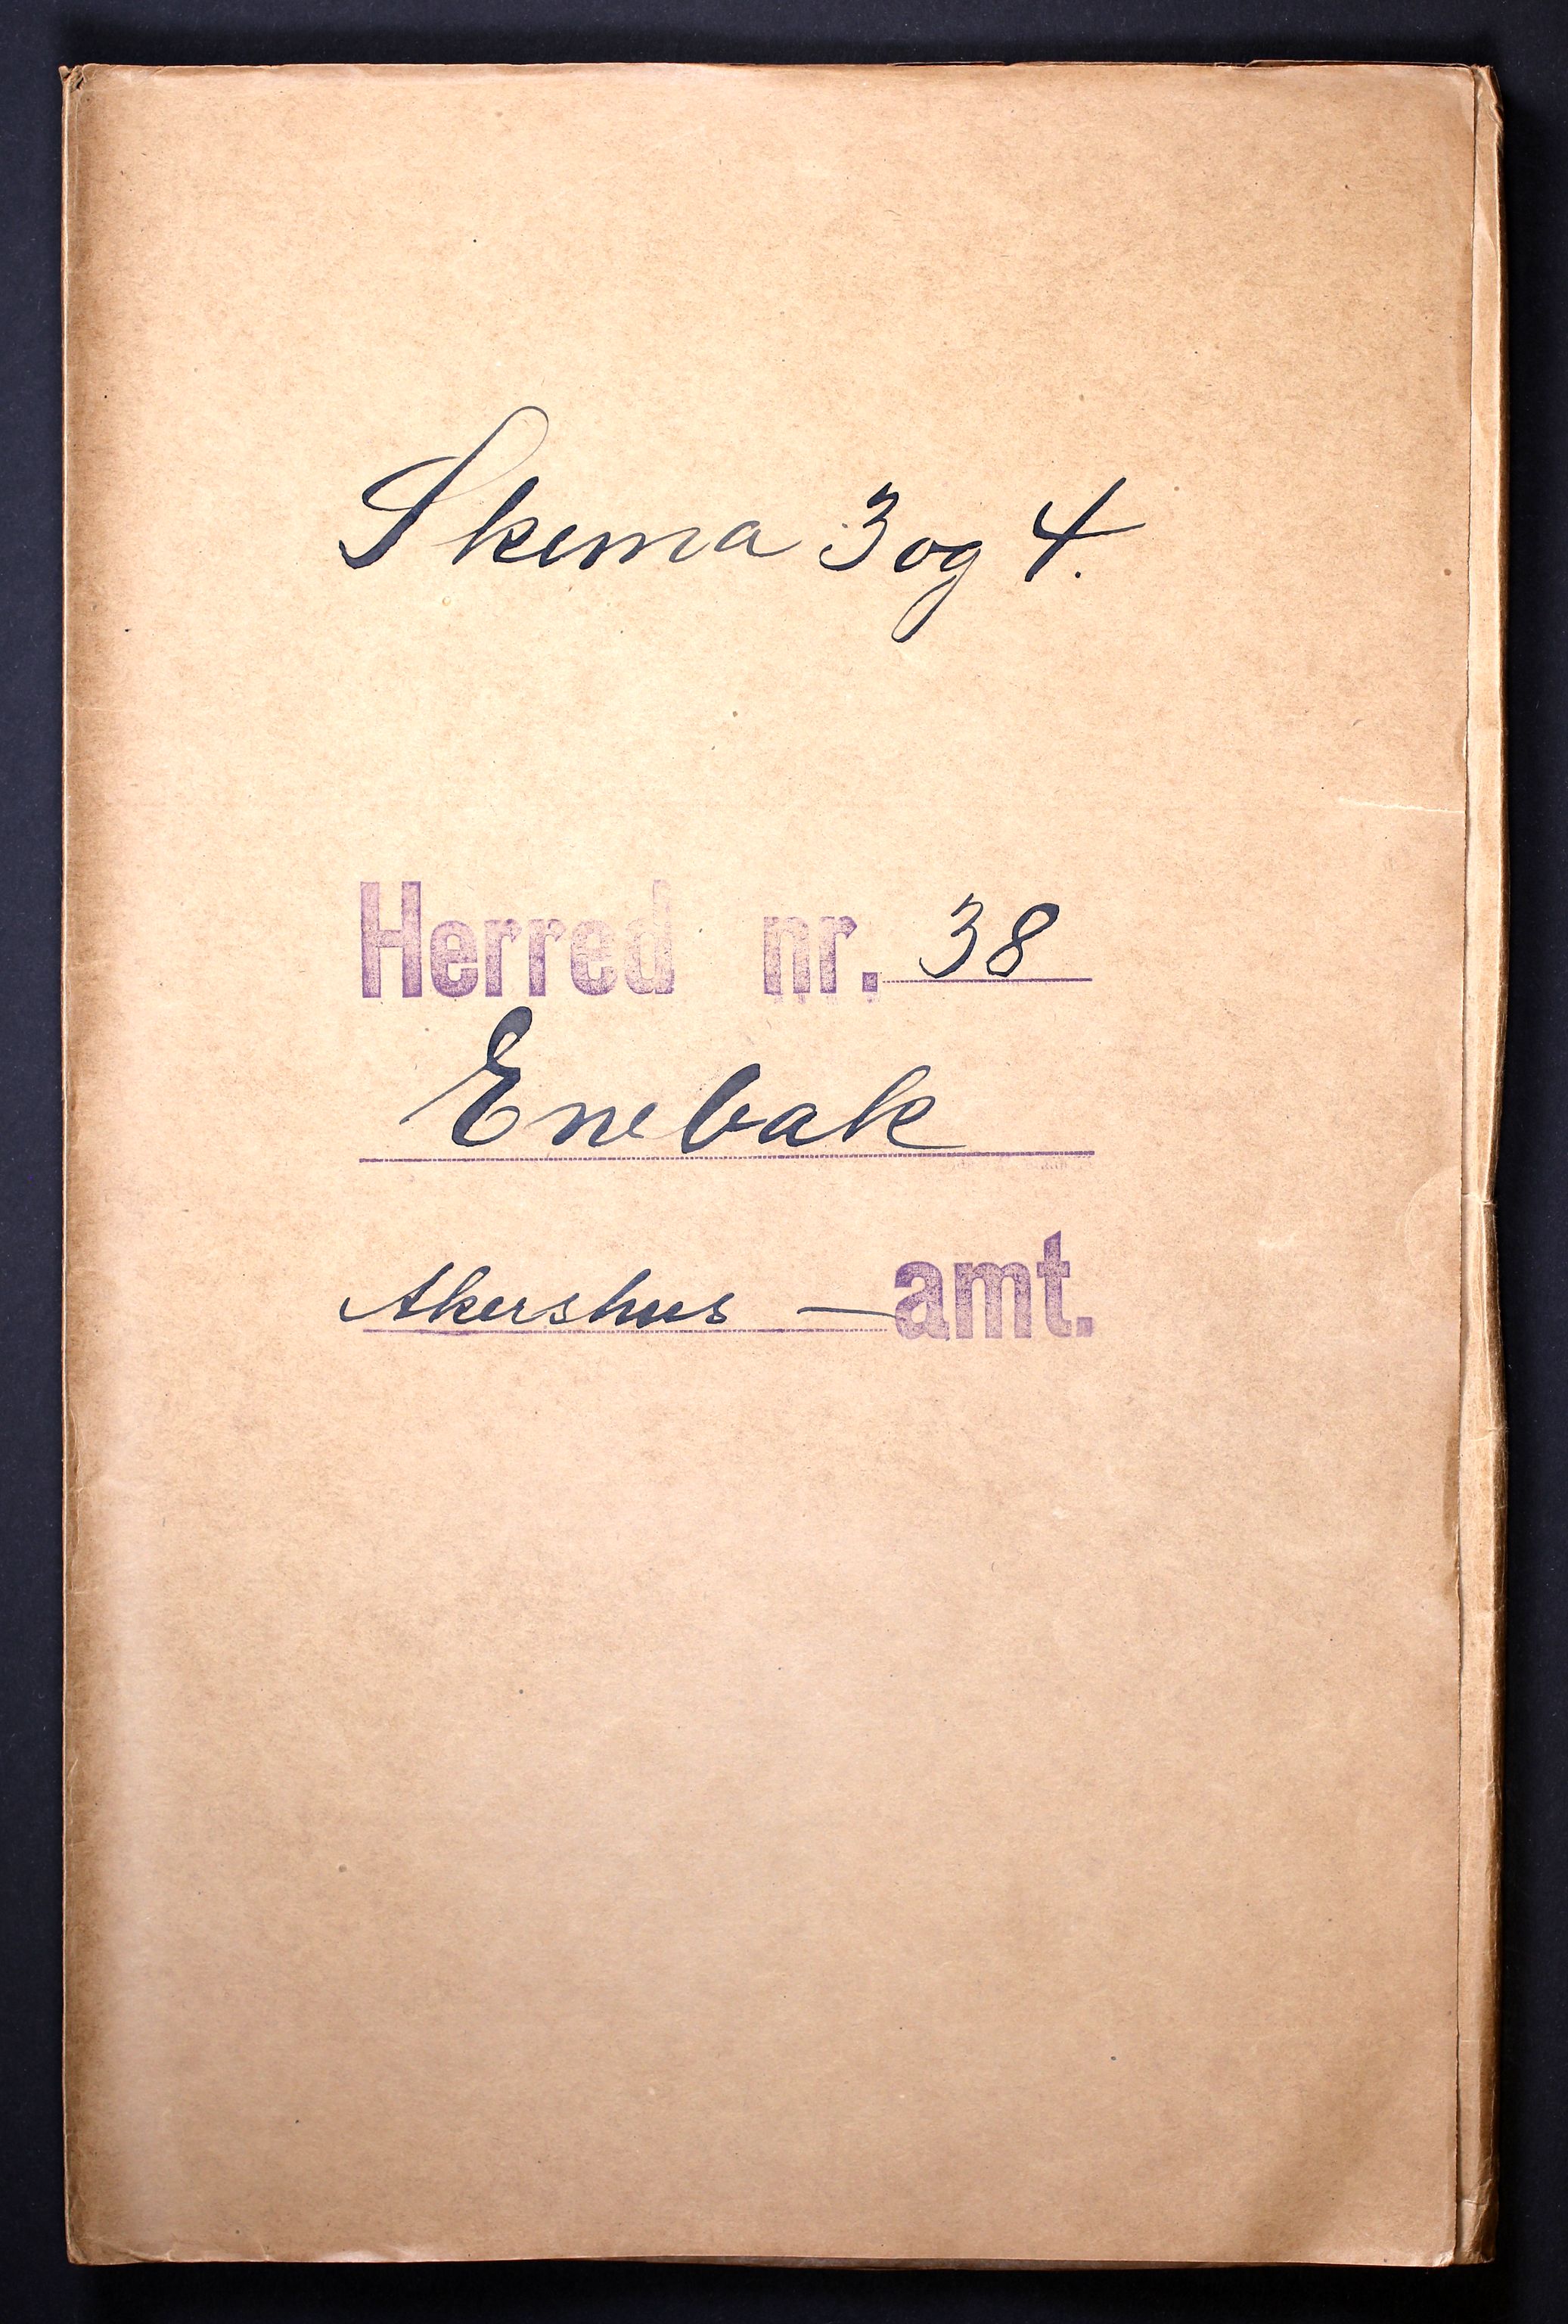 Skema 3 og 4.
Herred nr. 38
Enebak
Akershus — amt.